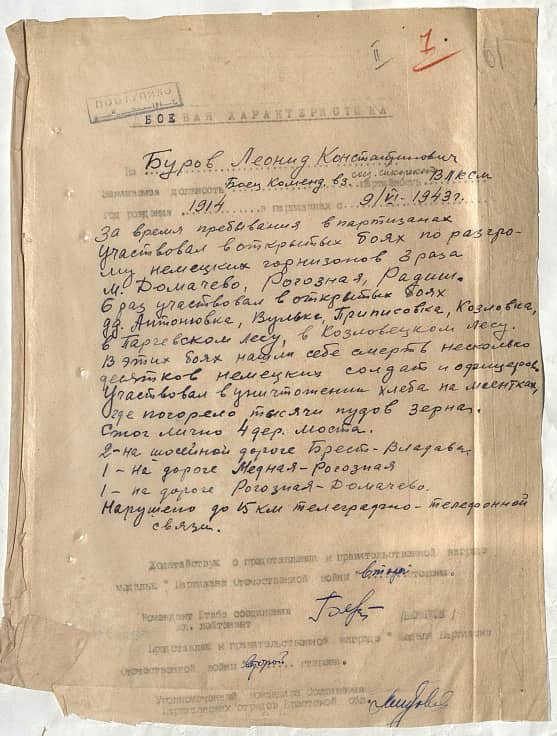 II
1.
61
ПОСТУПИЛО
БОЕВАЯ ХАРАКТЕРИСТИКА
На Буров Леонид Константинович
Занимаемая должность Боец Коменд. вз. партийность ВЛКСМ
год рождения 1914 в партизанах с 9/VI-1943г.
За время пребывания в партизанах
участвовал в открытых боях по разгро-
му немецких горнизонов 3 раза
м. Домачево, Рогозная, Радиш.
6 раз участвовал в открытых боях
дд. Антонювка, Вулька, Приписовка, Козловка,
в Парчевском лесу, в Козловецком лесу.
В этих боях нашли себе смерть несколько
десятков немецких солдат и офицеров.
Участвовал в уничтожении хлеба на маентках,
где погорело тысячи пудов зерна.
Сжог лично 4 дер. моста.
2-на шосейной дороге Брест-Владава.
1-на дороге Медная-Рогозная
1-на дороге Рогозная-Домачево.
Нарушено до 15 км телеграфно-телефонной
связи.
Ходатайствую о представлении к правительственной награде
медалью "Партизана Отечественной войны" второй степени.
Комендант Штаба соединения
мл. лейтенант
Представлен к правительственной награде "Медаль Партизана
Отечественной войны" второй степени.
Уполномоченный Командира Соединения
Партизанских отрядов Брестской обл.